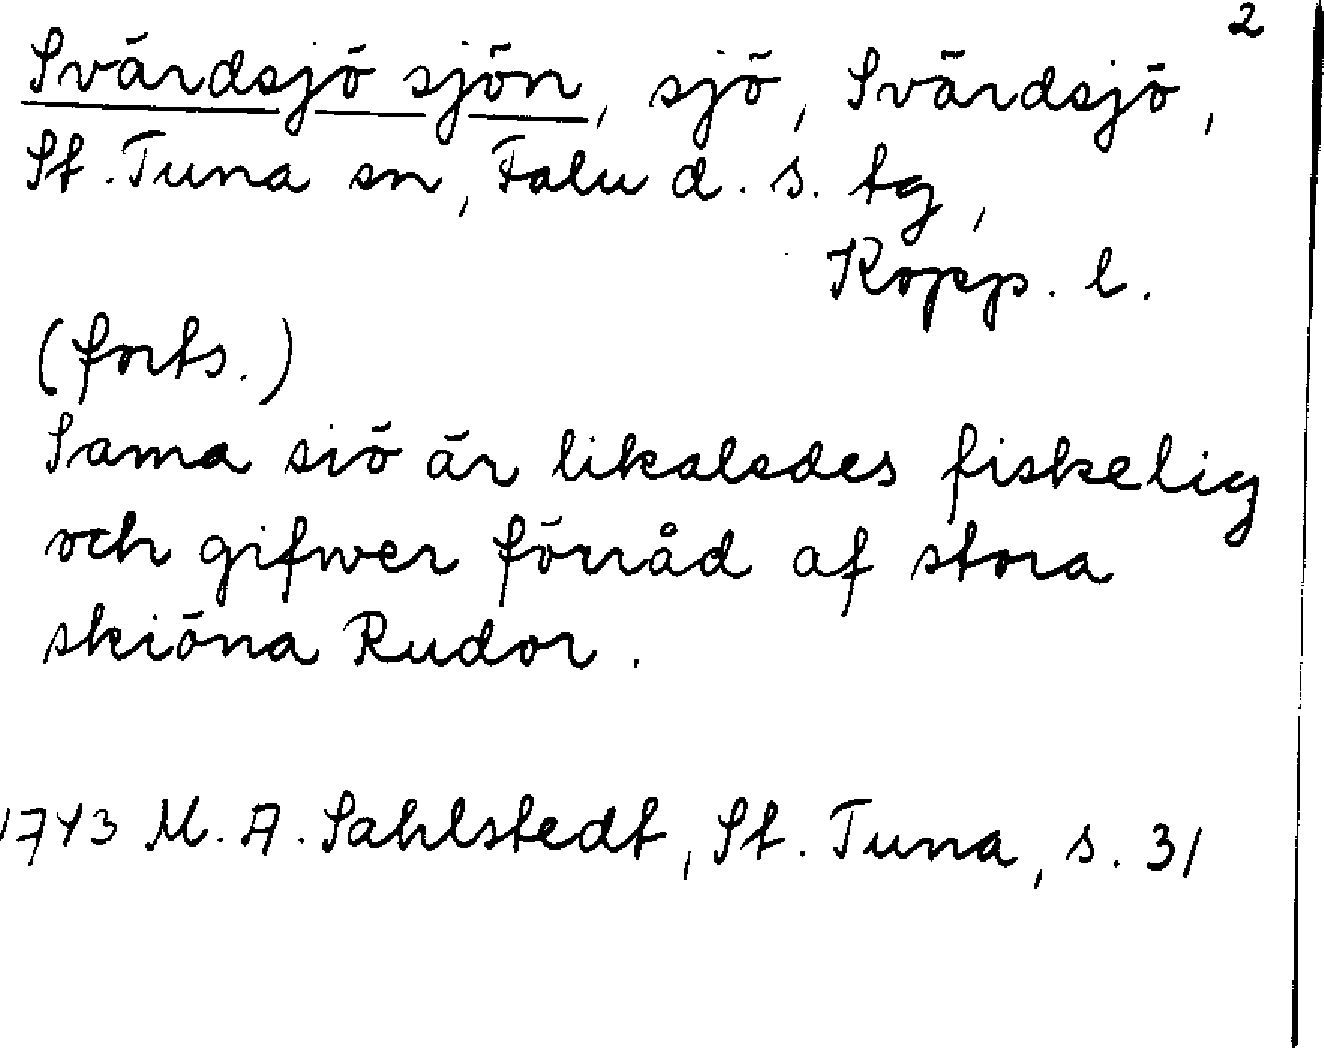 2
Svärdsjö sjön, sjö, Svärdsjö,
St. Tuna sn, Falu d. s. tg,
Kopp. l.
(forts.)
Sama siö är likaledes fiskelig
och gifwer förråd af stora
skiöna Rudor.
1743 M. A. Sahlstedt, St. Tuna, s. 31